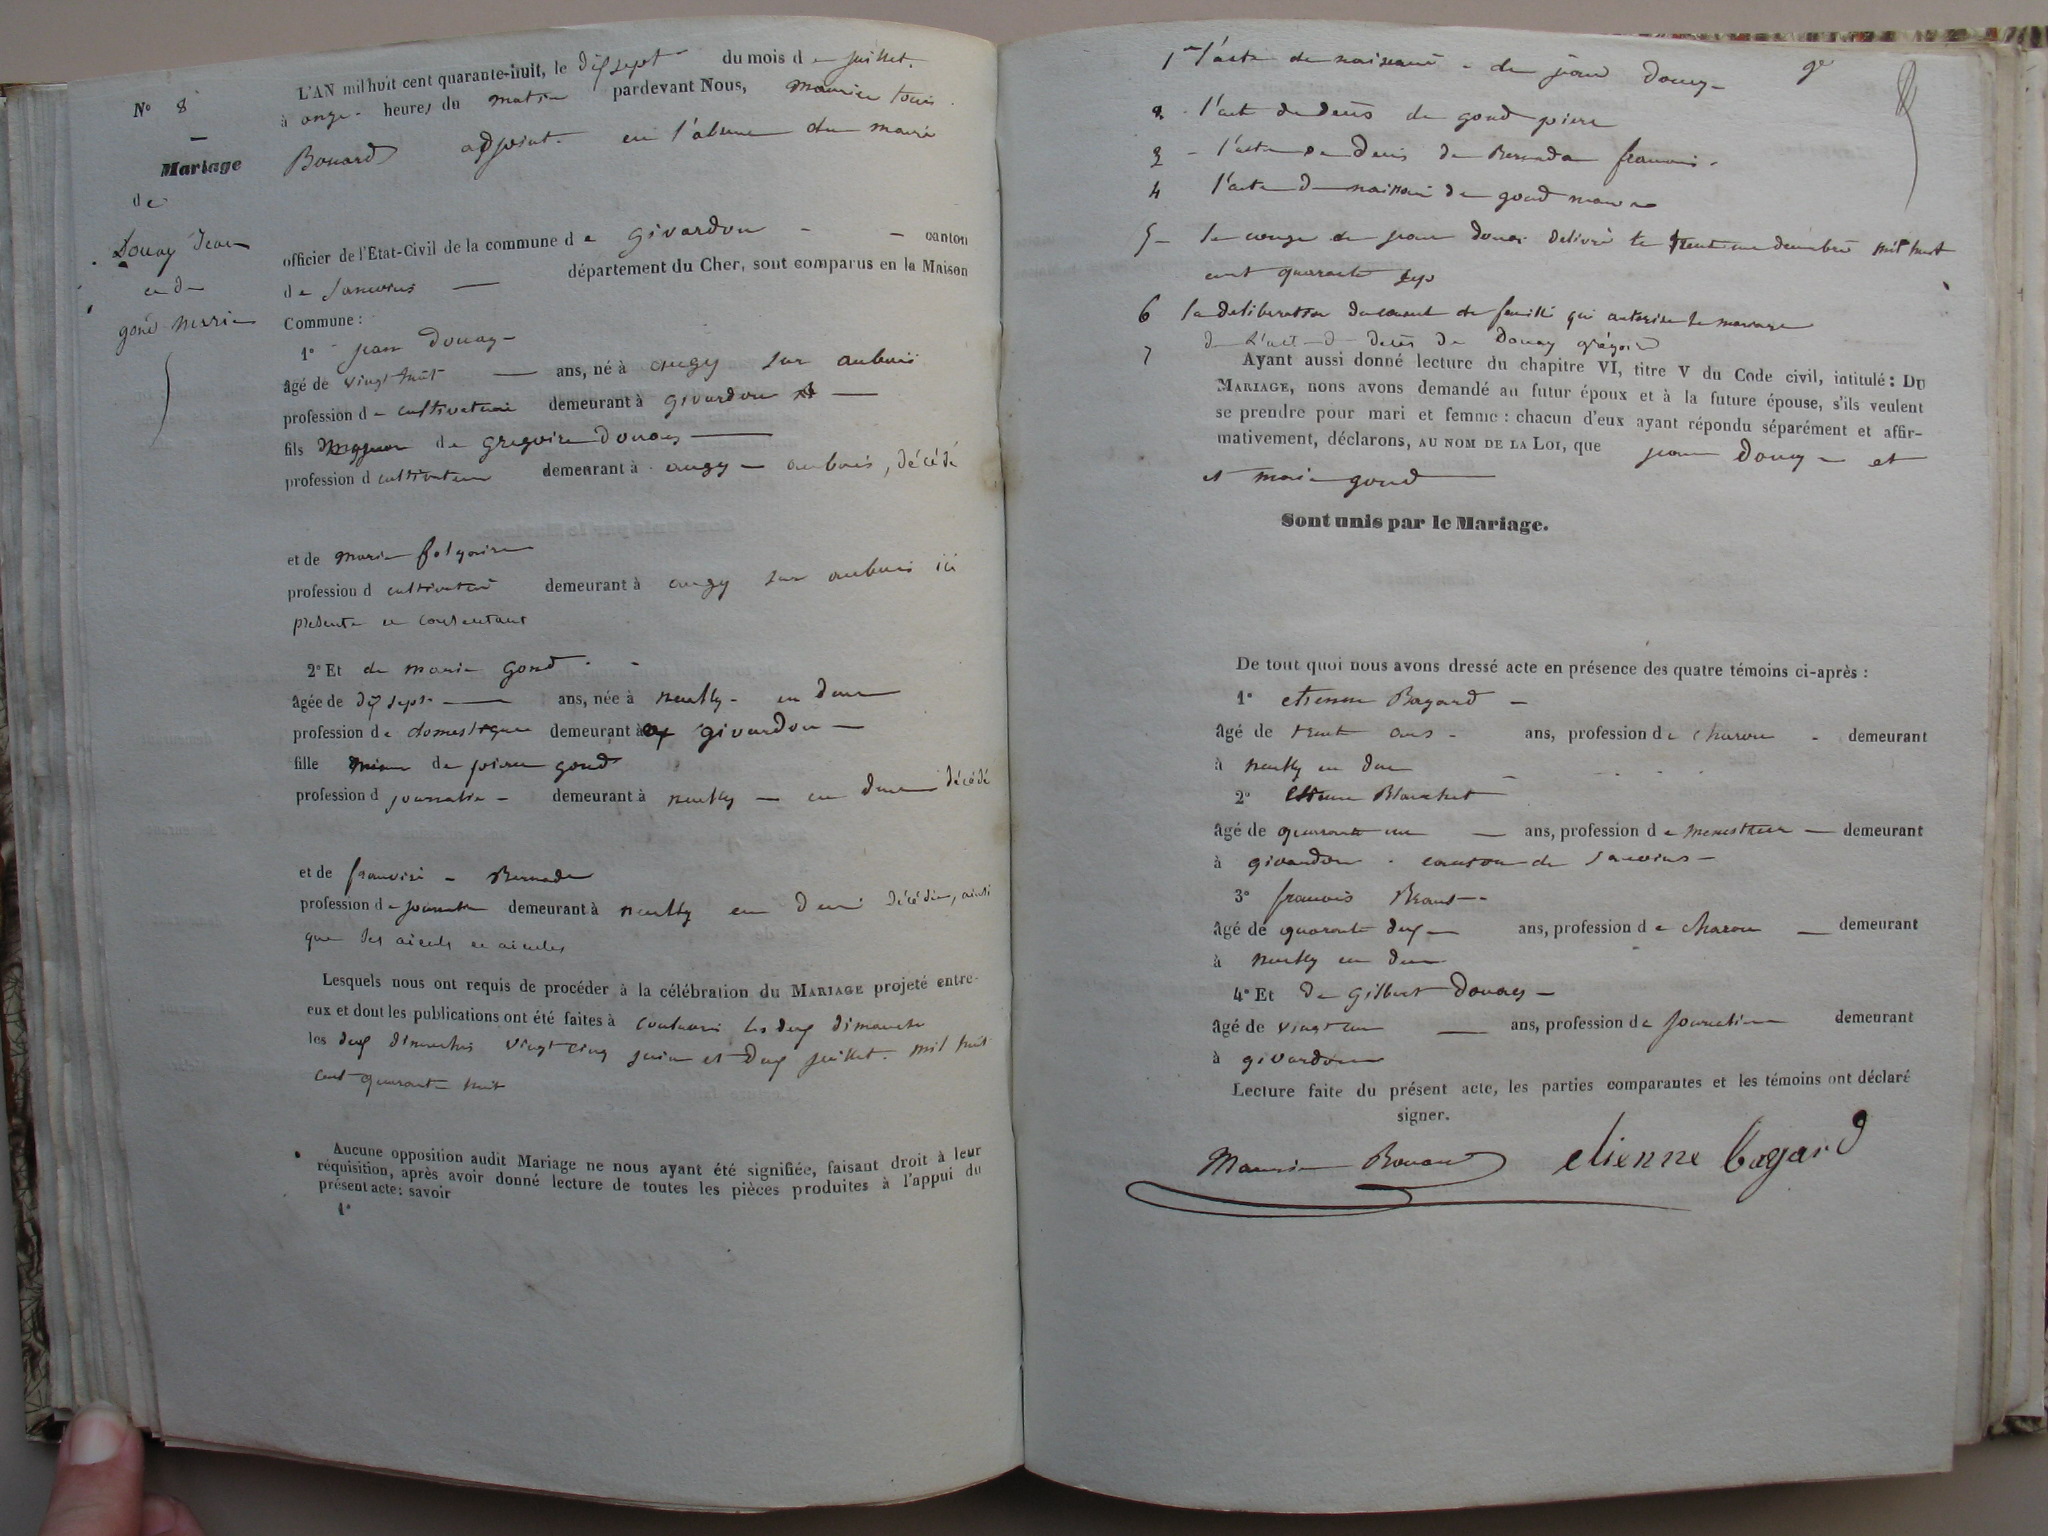 N° 8
Mariage
de
Douay Jean
et de
gond marie
L'AN mil huit cent quarante-huit, le dix sept du mois de juillet
à onze heures du matin pardevant Nous, maurice louis
Bouard adjoint en l'absence du maire
officier de l'Etat-Civil de la commune de givardon canton
de sancoins département du Cher, sont comparus en la Maison
Commune :
1° jean Douay
âgé de vingt huit ans, né à augy sur aubois
profession de cultivateur demeurant à givardon
fils majeur de gregoire Douay
profession d cultivateur demeurant à augy aubois, décédé
et de marie
profession d cultivateur demeurant à augy sur aubois ici
présente et consentant
2° Et de marie gond
âgée de dix sept ans, née à neuilly en dun
profession de domestique demeurant à givardon
fille mineure de pierre gond
profession d journalier demeurant à neuilly en dun décédé
et de francoise Bernada
profession de journalière demeurant à neuilly en dun décédée, ainsi
que les aieuls et aieules
Lesquels nous ont requis de procéder à la célébration du MARIAGE projeté entre-
eux et dont les publications ont été faites à les dux dimanche
les dux dimanches vingt cinq juin et dux juillet mil huit
cent quarante huit
Aucune opposition audit Mariage ne nous ayant été signifiée, faisant droit à leur
réquisition, après avoir donné lecture de toutes les pièces produites à l'appui du
présent acte: savoir
1°
1er l'acte de naissance de jean Douay
2 l'acte de décès de gond pierre
3 l'acte de décès de Bernada francoise
4 l'acte de naissance de gond marie
5 le conge de jean douai délivré le trente un decembre mil huit
cent quarante sep
6 la deliberation du conseil de famille qui autorise le mariage
7 de l'act de décès de Douay grégoire
Ayant aussi donné lecture du chapitre VI, titre V du Code civil, intitulé : DU
MARIAGE, nous avons demandé au futur époux et à la future épouse, s'ils veulent
se prendre pour mari et femme : chacun d'eux ayant répondu séparément et affir-
mativement, déclarons, AU NOM DE LA LOI, que jean Douay et
et marie gond
Sont unis par le Mariage.
De tout quoi nous avons dressé acte en présence des quatre témoins ci-après :
1° etienne Bagard
âgé de trente ans ans, profession de charon demeurant
à neuilly en dun
2° Etienne Blanchet
âgé de quarante un ans, profession de demeurant
à givardon canton de sancoins
3° francois
âgé de quarante dux ans, profession de charon demeurant
à neuilly en dun
4° Et de Gilbert Douay
âgé de vingt un ans, profession de journalier demeurant
à givardon
Lecture faite du présent acte, les parties comparantes et les témoins ont déclaré
signer.
Maurice Bouard etienne bagard